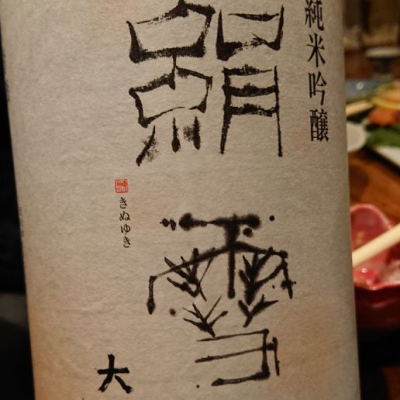 純米吟醸
絹雪
きぬゆき
大